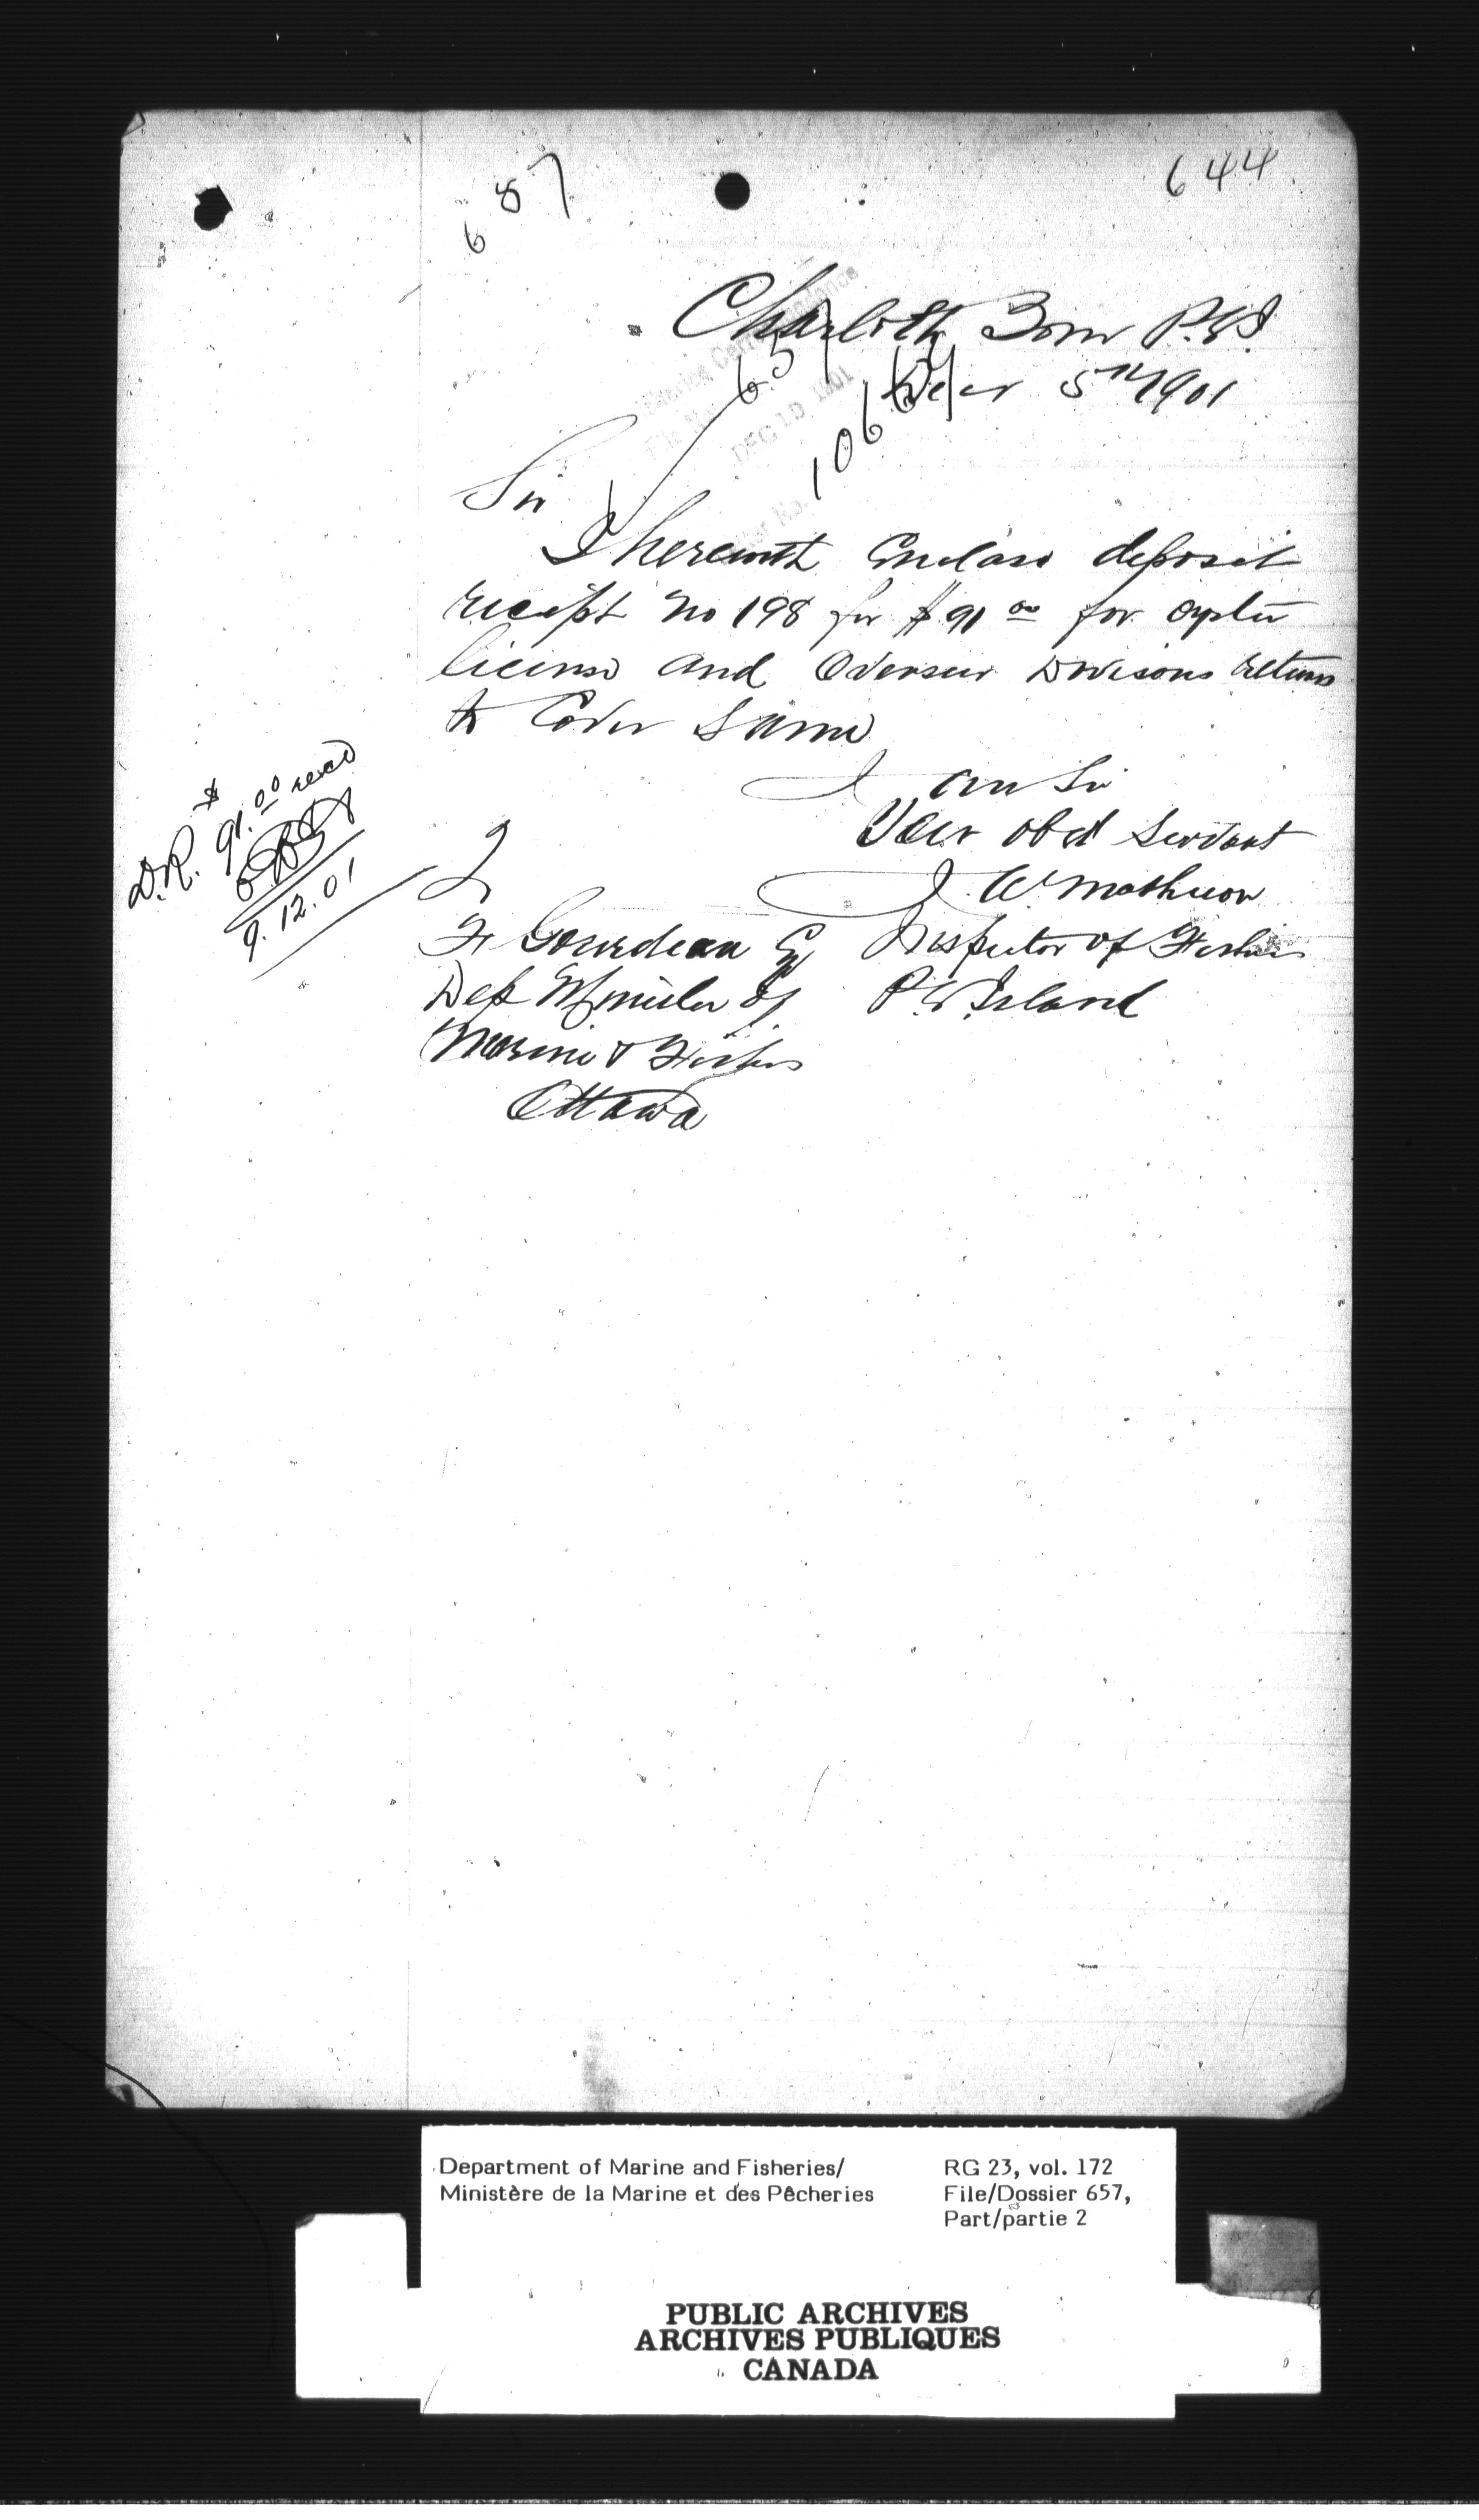 644
687
Charlotte Town P.E.I.
Decr 5th 1901
Fisheries Correspondence
File No. 657
DEC 10 1901
Sir
I herewith Enclose deposit
receipt No 198 for $91 00 for oyster
license and Overseer Davisons return
to Cover Same
I am Sir
Your obdt Servant
J W Matheson
Inspector of Fisheries
P. E. Island
D.R. $91.00 recd
9.12.01
To
F Gourdeau Esq
Dep Minister of
Marine & Fisheries
Ottawa
Department of Marine and Fisheries/
Ministère de la Marine et des Pêcheries
RG 23, vol. 172
File/Dossier 657,
Part/partie 2
PUBLIC ARCHIVES
ARCHIVES PUBLIQUES
CANADA